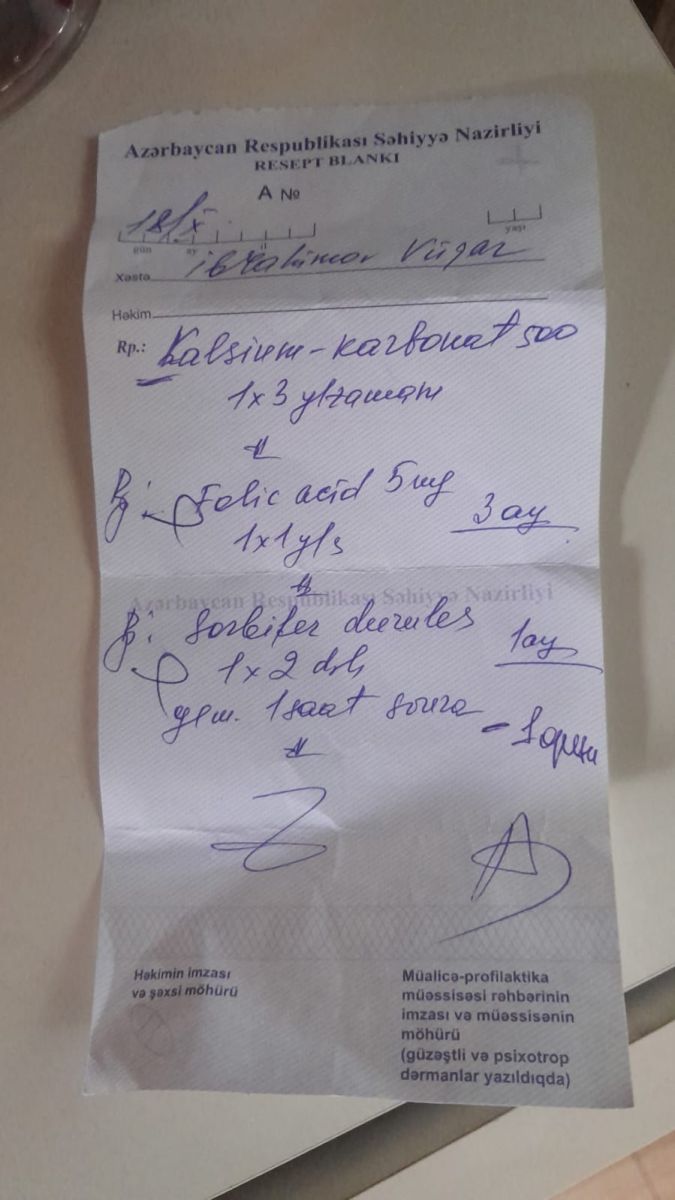 Azərbaycan Respublikası Səhiyyə Nazirliyi
RESEPT BLANKI
A №
18/X
gün ay il yaşı
Xəstə İbrahimov Vüqar
Həkim
Rp.: Kalsium-karbonat 500
1x3
Folic acid 5mg
3 ay
1x1
Azərbaycan Respublikası Səhiyyə Nazirliyi
Sorbifer durules
1 ay
1x2
1 saat sonra
Həkimin imzası
və şəxsi möhürü
Müalicə-profilaktika
müəssisəsi rəhbərinin
imzası və müəssisənin
möhürü
(güzəştli və psixotrop
dərmanlar yazıldıqda)